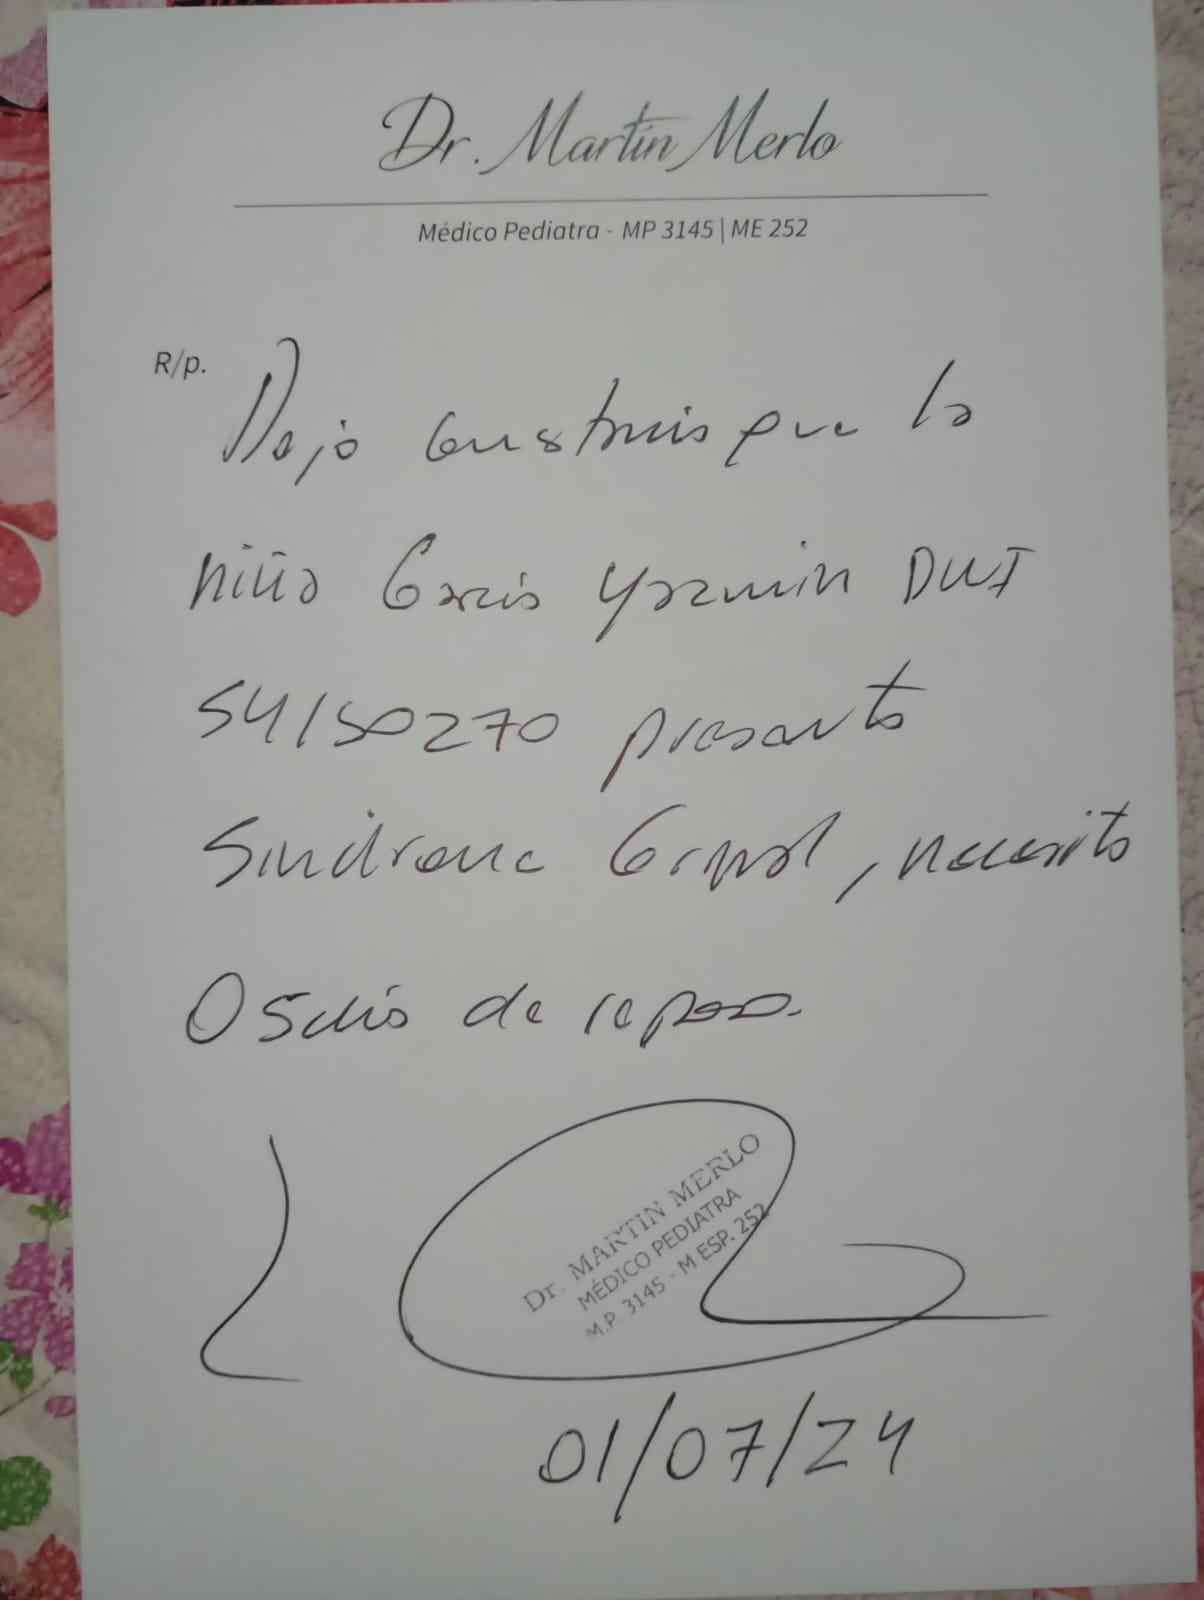 Dr. Martín Merlo
Médico Pediatra - MP 3145 | ME 252
R/p.
Dejo constancia que la
niña García Yazmin DNI
54150270 presenta
Sindrome Gripal, necesita
05 días de reposo.
Dr. MARTIN MERLO
MÉDICO PEDIATRA
M.P. 3145 - M ESP. 252
01/07/24